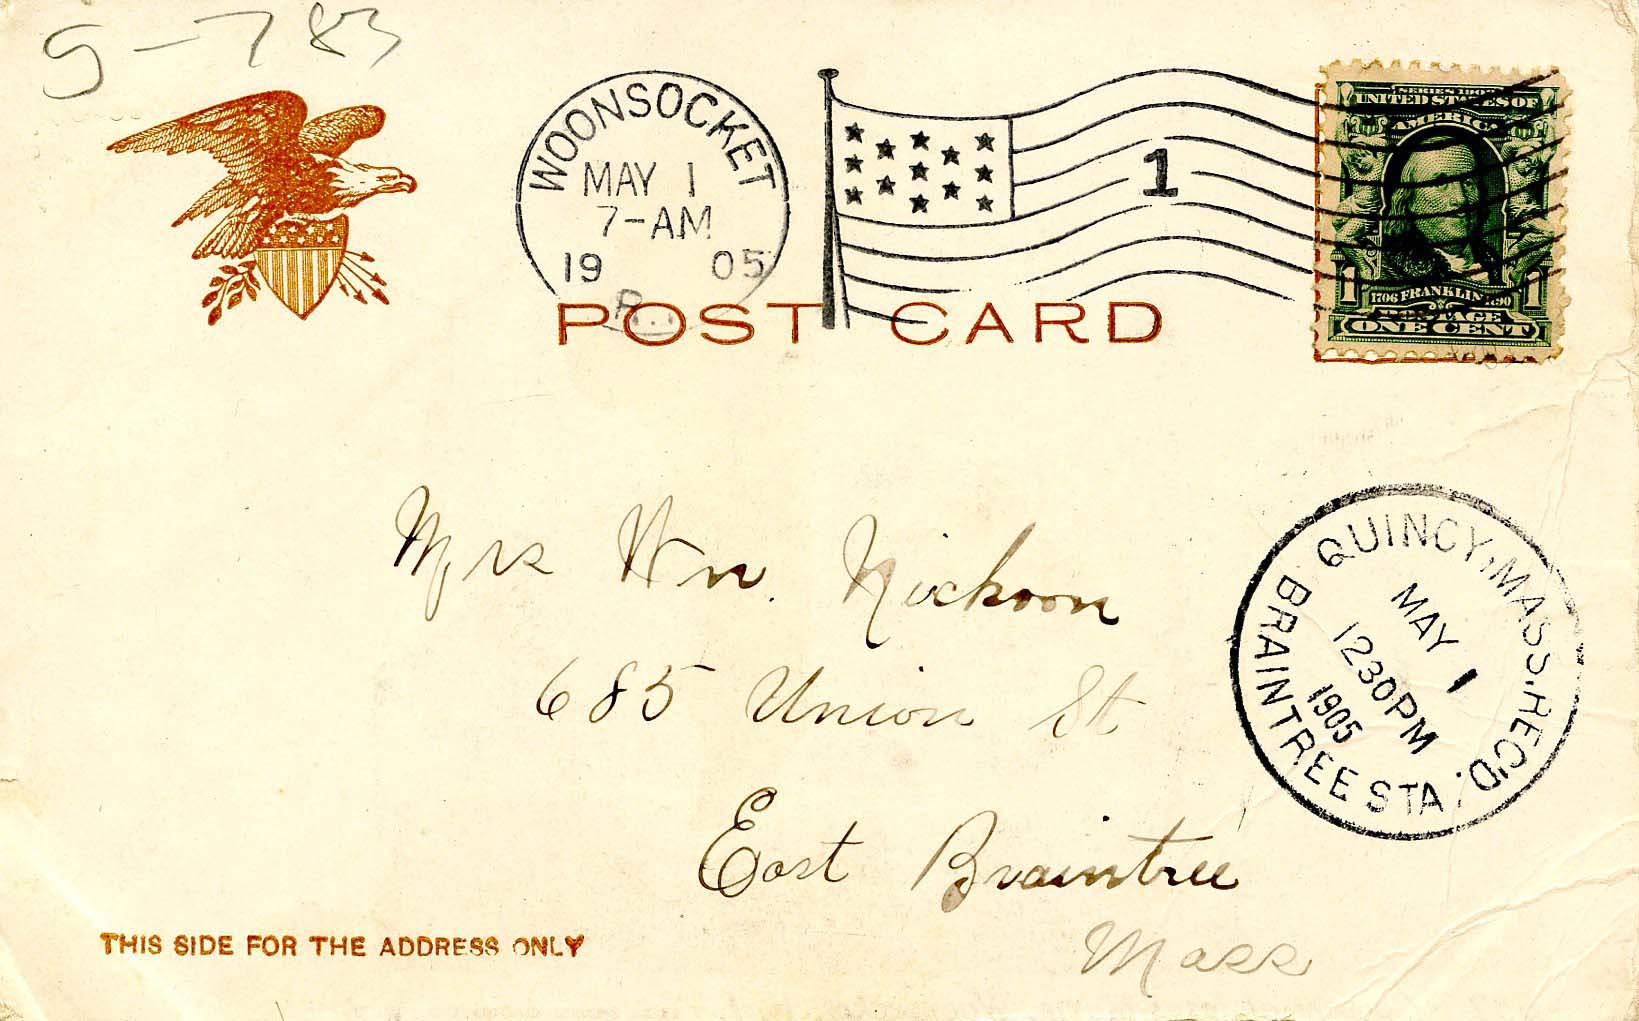 5-783
WOONSOCKET
MAY 1
7-AM
19 05
R.I.
1
SERIES 1902
UNITED STATES OF
AMERICA
1706 FRANKLIN 1790
POSTAGE
1 ONE CENT 1
POST CARD
QUINCY, MASS. REC'D.
MAY 1
1230PM
1905
BRAINTREE STA.
Mrs Wm. Nickson
685 Union St
East Braintree
Mass
THIS SIDE FOR THE ADDRESS ONLY